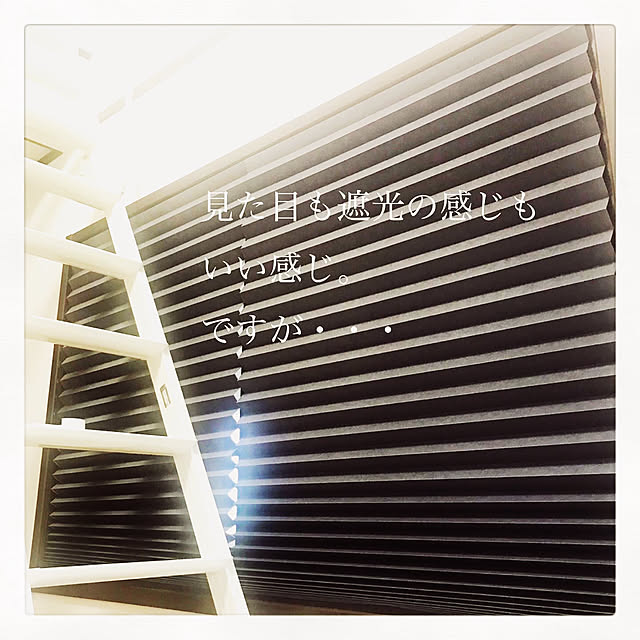 見た目も遮光の感じも
いい感じ。
ですが・・・